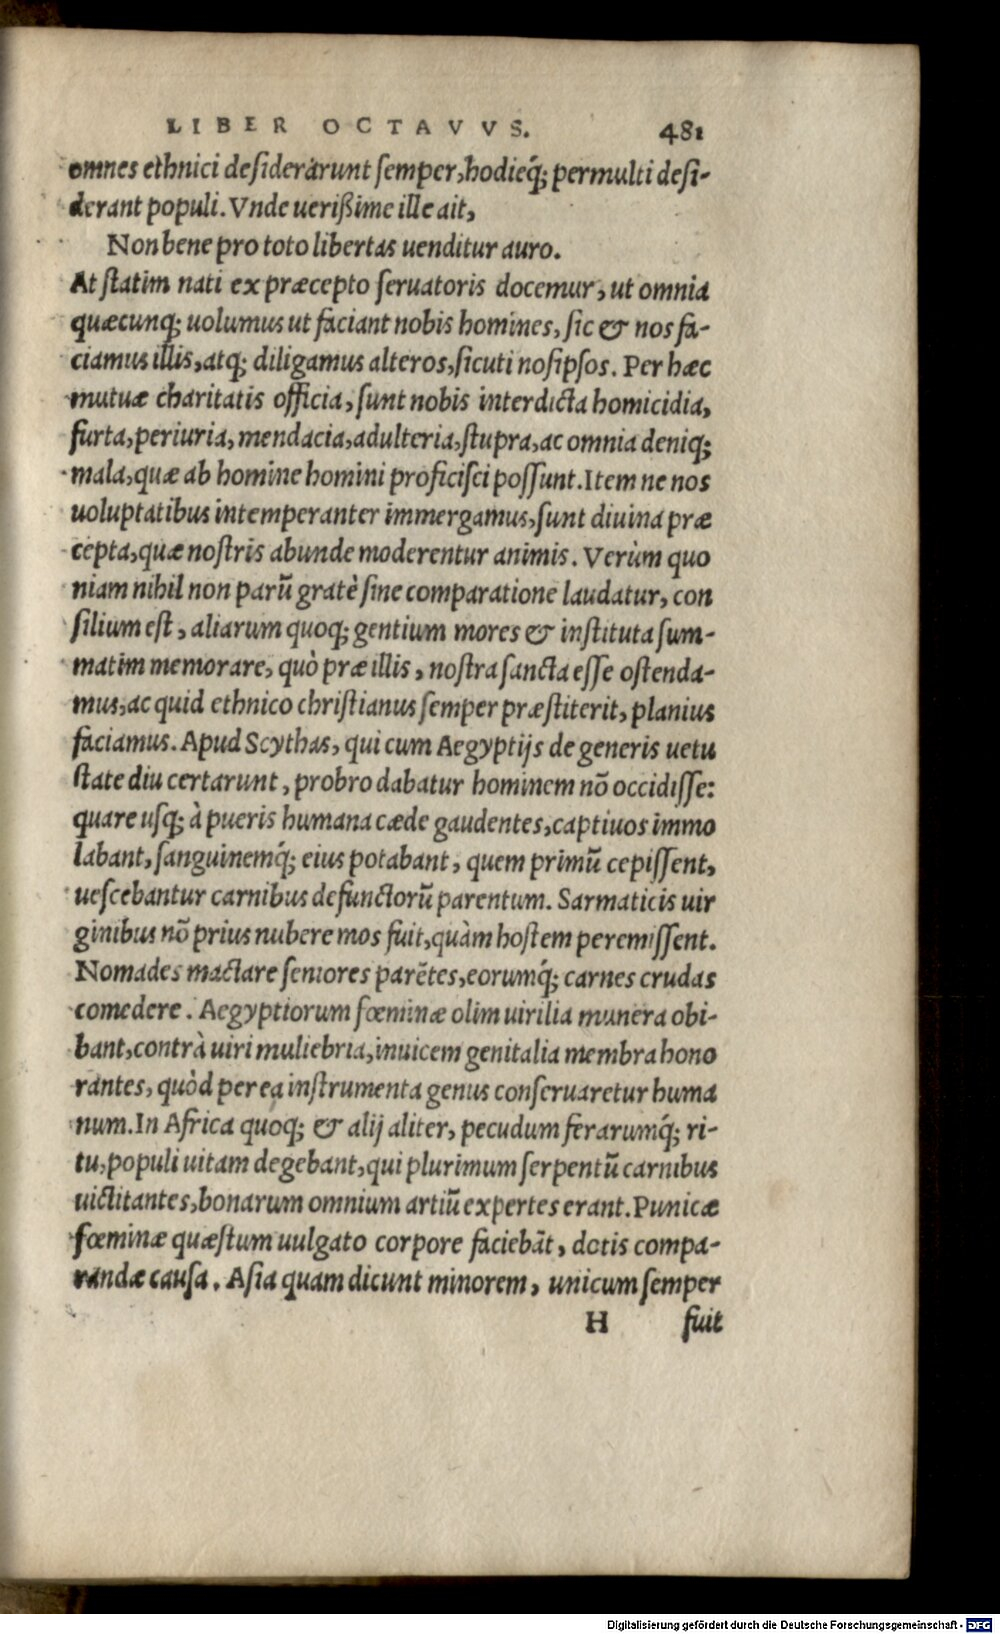 LIBER OCTAVVS. 481
omnes ethnici desiderarunt semper, hodieq́; permulti desi-
derant populi. Vnde uerißime ille ait,
Non bene pro toto libertas uenditur auro.
At statim nati ex præcepto seruatoris docemur, ut omnia
quæcunq; uolumus ut faciant nobis homines, sic & nos fa-
ciamus illis, atq; diligamus alteros, sicuti nosipsos. Per hæc
mutuæ charitatis officia, sunt nobis interdicta homicidia,
furta, periuria, mendacia, adulteria, stupra, ac omnia deniq;
mala, quæ ab homine homini proficisci possunt. Item ne nos
uoluptatibus intemperanter immergamus, sunt diuina præ
cepta, quæ nostris abunde moderentur animis. Verùm quo
niam nihil non parũ gratè sine comparatione laudatur, con
silium est, aliarum quoq; gentium mores & instituta sum-
matim memorare, quò præ illis, nostra sancta esse ostenda-
mus, ac quid ethnico christianus semper præstiterit, planius
faciamus. Apud Scythas, qui cum Aegyptijs de generis uetu
state diu certarunt, probro dabatur hominem nõ occidisse:
quare usq; à pueris humana cæde gaudentes, captiuos immo
labant, sanguinemq́; eius potabant, quem primũ cepissent,
uescebantur carnibus defunctorũ parentum. Sarmaticis uir
ginibus nõ prius nubere mos fuit, quàm hostem peremissent.
Nomades mactare seniores parẽtes, eorumq́; carnes crudas
comedere. Aegyptiorum fœminæ olim uirilia munera obi-
bant, contrà uiri muliebria, inuicem genitalia membra hono
rantes, quòd per ea instrumenta genus conseruaretur huma
num. In Africa quoq; & alij aliter, pecudum ferarumq́; ri-
tu, populi uitam degebant, qui plurimum serpentũ carnibus
uictitantes, bonarum omnium artiũ expertes erant. Punicæ
fœminæ quæstum uulgato corpore faciebãt, dotis compa-
randæ causa. Asia quam dicunt minorem, unicum semper
H fuit
Digitalisierung gefördert durch die Deutsche Forschungsgemeinschaft - DFG